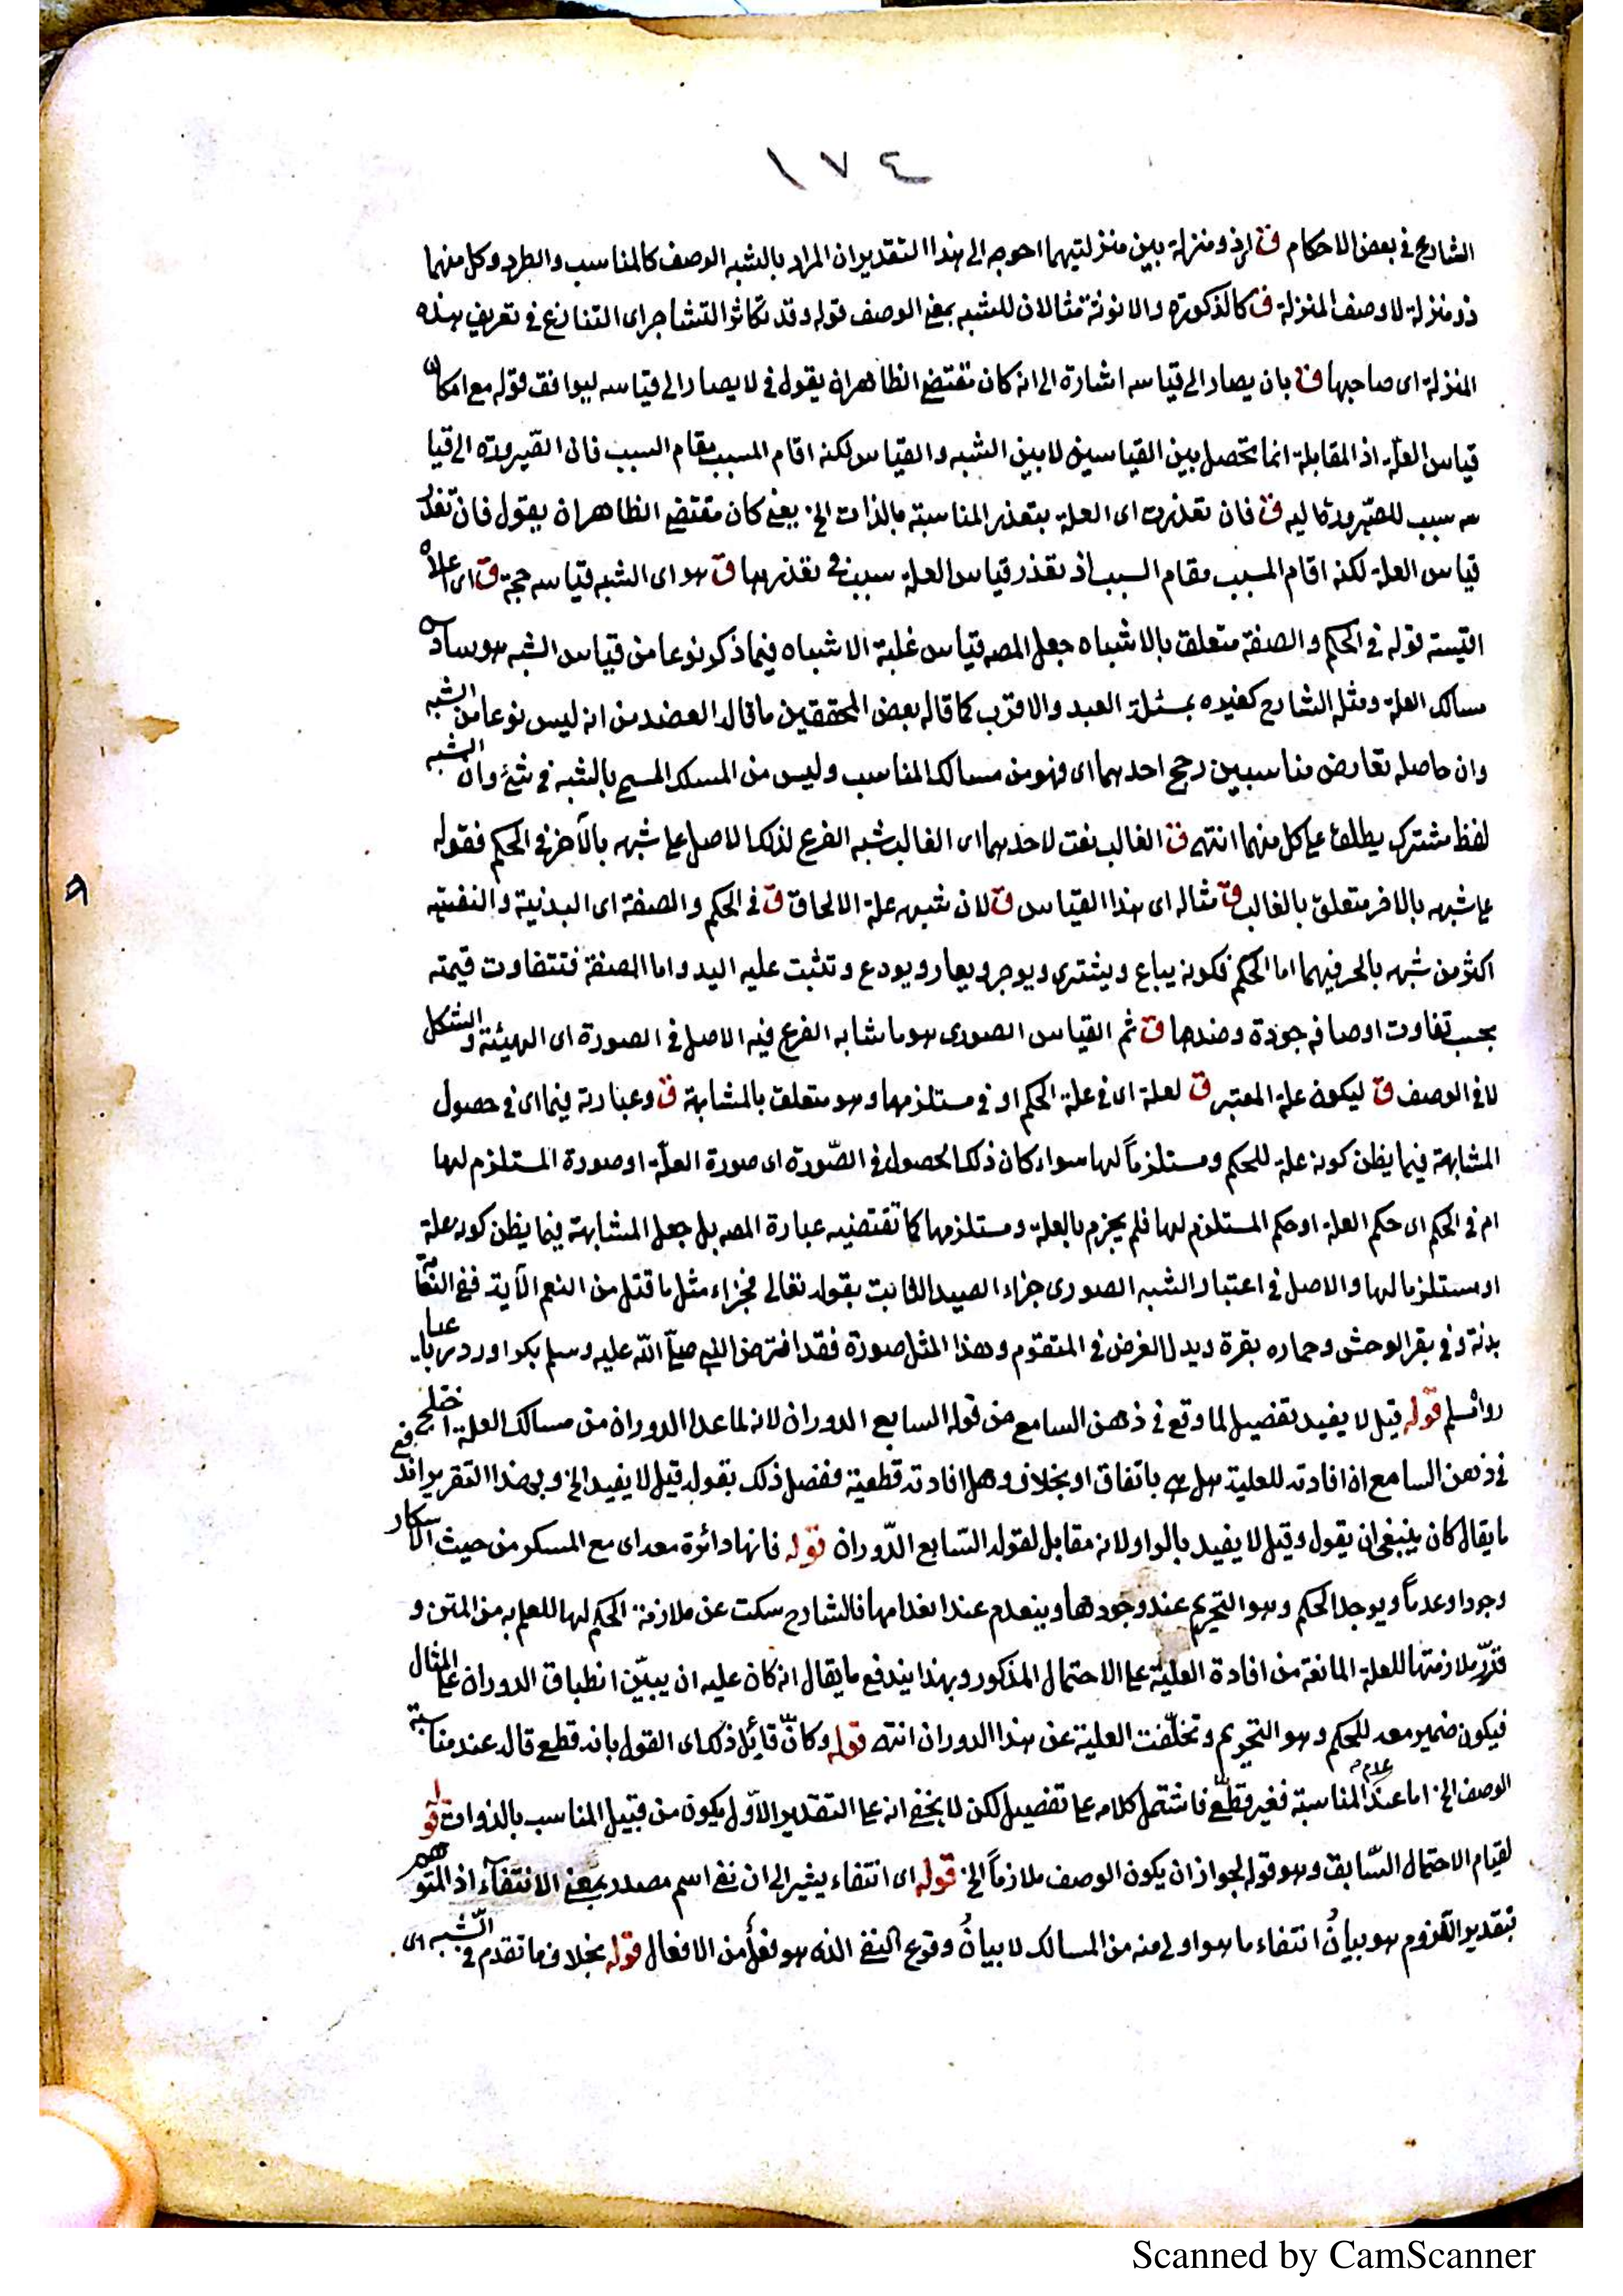 ١٧٤
الشارع في بعض الاحكام ق اي ذو منزلة بين منزلتيهما احوجه الى هذا التقدير ان المراد بالشبه الوصف كالمناسب والطرد وكل منهما
ذو منزلة لا وصف المنزلة ق كالذكورة والانوثة مثالان للشبه بمعنى الوصف قوله وقد تكاثر التشاجر اى التنازع في تعريف هذه
المنزلة اى صاحبها ق بان يصار الى قياسه اشارة الى انه كان مقتضى الظاهر ان يقول في لا يصار الى قياسه ليوافق قوله مع امكان
قياس العلة اذ المقابلة انما تحصل بين القياسين لا بين الشبه والقياس لكنه اقام المسبب مقام السبب فان الصيرورة الى قيا
سه سبب للصيرورة اليه ق فان تعذرت اى العلة بتعذر المناسبة بالذات الخ يعني كان مقتضى الظاهر ان يقول فان تعذر
قياس العلة لكنه اقام المسبب مقام السبب اذ تعذر قياس العلة سبب في تعذرها ق هو اى الشبه قياسه حجة ق اى اعلاه
اقيسته قوله في الحكم والصفة متعلق بالاشباه جعل المصه قياس غلبة الاشباه فيما ذكر نوعا من قياس الشبه هو سادة
مسالك العلة ومثله الشارح كغيره بمسئلة العبد والاقرب كما قاله بعض المحققين ما قاله العضد من انه ليس نوعا من الشبه
وان حاصله تعارض مناسبين رجح احدهما اى فهو من مسالك المناسب وليس من المسلك المسمى بالشبه في شئ وان الشبه
لفظ مشترك يطلق على كل منهما انتهى ق الغالب نعت لاحدهما اى الغالب شبه الفرع لذلك الاصل على شبهه بالآخر في الحكم فقوله
على شبهه بالاخر متعلق بالغالب ق مثاله اى هذا القياس ق لان شبهه علة الالحاق ق في الحكم والصفة اى البدنية والنفسية
اكثر من شبهه بالحر فيهما اما الحكم فكونه يباع ويشترى ويوجر ويعار ويودع وتثبت عليه اليد واما الصفة فتتفاوت قيمته
بحسب تفاوت اوصافه جودة وضدها ق ثم القياس الصورى هو ما شابه الفرع فيه الاصل في الصورة اى الهيئة والشكل
لا في الوصف ق ليكون علة المعتبر ق لعلة اى في علة الحكم او في مستلزمها وهو متعلق بالمشابهة ق وعبارته فيما اى في حصول
المشابهة فيما يظن كونه علة للحكم ومستلزماً لها سواء كان ذلك الحصول في الصّورة اى صورة العلة او صورة المستلزم لها
ام في الحكم اى حكم العلة او حكم المستلزم لها فلم يجزم بالعلة ومستلزمها كما تقتضيه عبارة المصه بل جعل المشابهة فيما يظن كونه علة
او مستلزما لها والاصل في اعتبار الشبه الصورى جزاء الصيد الثابت بقوله تعالى فجزاء مثل ما قتل من النعم الآية ففي النعامة
بدنة وفي بقر الوحش وحماره بقرة وبدل القرض في المتقوم وهذا المثل صورة فقد اقترض النبي صلى الله عليه وسلم بكرا ورد رباعيا
رواه مسلم قوله قيل لا يفيد تفصيل لما وقع في ذهن السامع من قوله السابع الدوران لانه لما عد الدوران من مسالك العلة اختلج
في ذهن السامع ان افادته للعلية هل هي باتفاق او بخلاف وهل افادته قطعية ففصل ذلك بقوله قيل لا يفيد الخ وبهذا التقرير اندفع
ما يقال كان ينبغى ان يقول وقيل لا يفيد بالواو لانه مقابل لقوله السّابع الدّوران قوله فانها دائرة معه اى مع المسكر من حيث الاسكار
وجودا وعدماً ويوجد الحكم وهو التحريم عند وجودها وينعدم عند انعدامها فالشارح سكت عن ملازمة الحكم لها للعلم به من المتن و
قرّر ملازمتها للعلة المانعة من افادة العليّة على الاحتمال المذكور وبهذا يندفع ما يقال انه كان عليه ان يبيّن انطباق الدوران على المثال
فيكون ضمير معه للحكم وهو التحريم وتخلّفت العلية عن هذا الدوران انتهى قوله وكانّ قائل ذلك اى القول بانه قطع قاله عند مناسبة
الوصف الخ اما عند عدم المناسبة فغير قطعّي فاشتمل كلامه على تفصيل لكن لا يخفى انه على التقدير الاوّل يكون من قبيل المناسب بالذوات قوله
لقيام الاحتمال السّابق وهو قوله لجواز ان يكون الوصف ملازماً الخ قوله اى انتفاء يشير الى ان نفى اسم مصدر بمعنى الانتفاء اذ المتوهم
بتقدير اللزوم هو بيان انتفاء ما هو اولى منه من المسالك لا بيان وقوع النفى الذى هو فعل من الافعال قوله بخلاف ما تقدم في الشّبه اى
Scanned by CamScanner